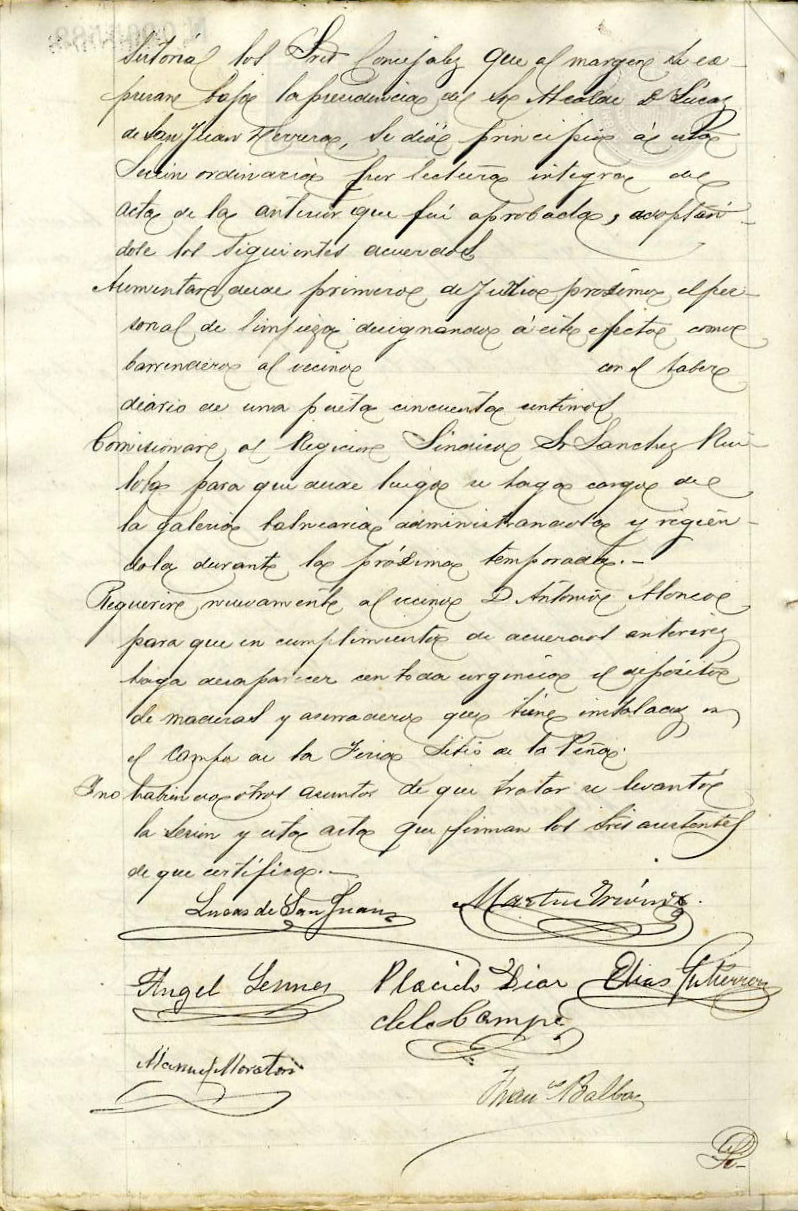 sistorial los Sres Concejales que al margen se ex-
presan bajo la presidencia del Sr Alcalde D Lucas
de San Juan Herrera, se dió principio á esta
Sesion ordinaria por lectura integra del
acta de la anterior que fué aprobada, adoptan-
dose los siguientes acuerdos
Aumentar desde primero de Julio próximo el per-
sonal de limpieza designando á este efecto como
barrendero al vecino con el haber
diario de una peseta cincuenta centimos
Comisionar al Regidor Sindico Sr Sanchez
para que desde luego se haga cargo de
la galeria balnearia administrandola y rigien-
dola durante la próxima temporada.-
Requerir nuevamente al vecino D Antonio Alonso
para que en cumplimiento de acuerdos anteriores
haga desaparecer con toda urgencia el depósito
de maderas y aserradero que tiene instalado en
el campo de la Feria Sitio de la Peña.
Y no habiendo otros asuntos de que tratar se levantó
la sesion y esta acta que firman los Sres asistentes
de que certifico.-
Lucas de San Juan Martin
Angel Placido Diaz Elias Gutierrez
de la Campa
Manuel
Franco Balbas